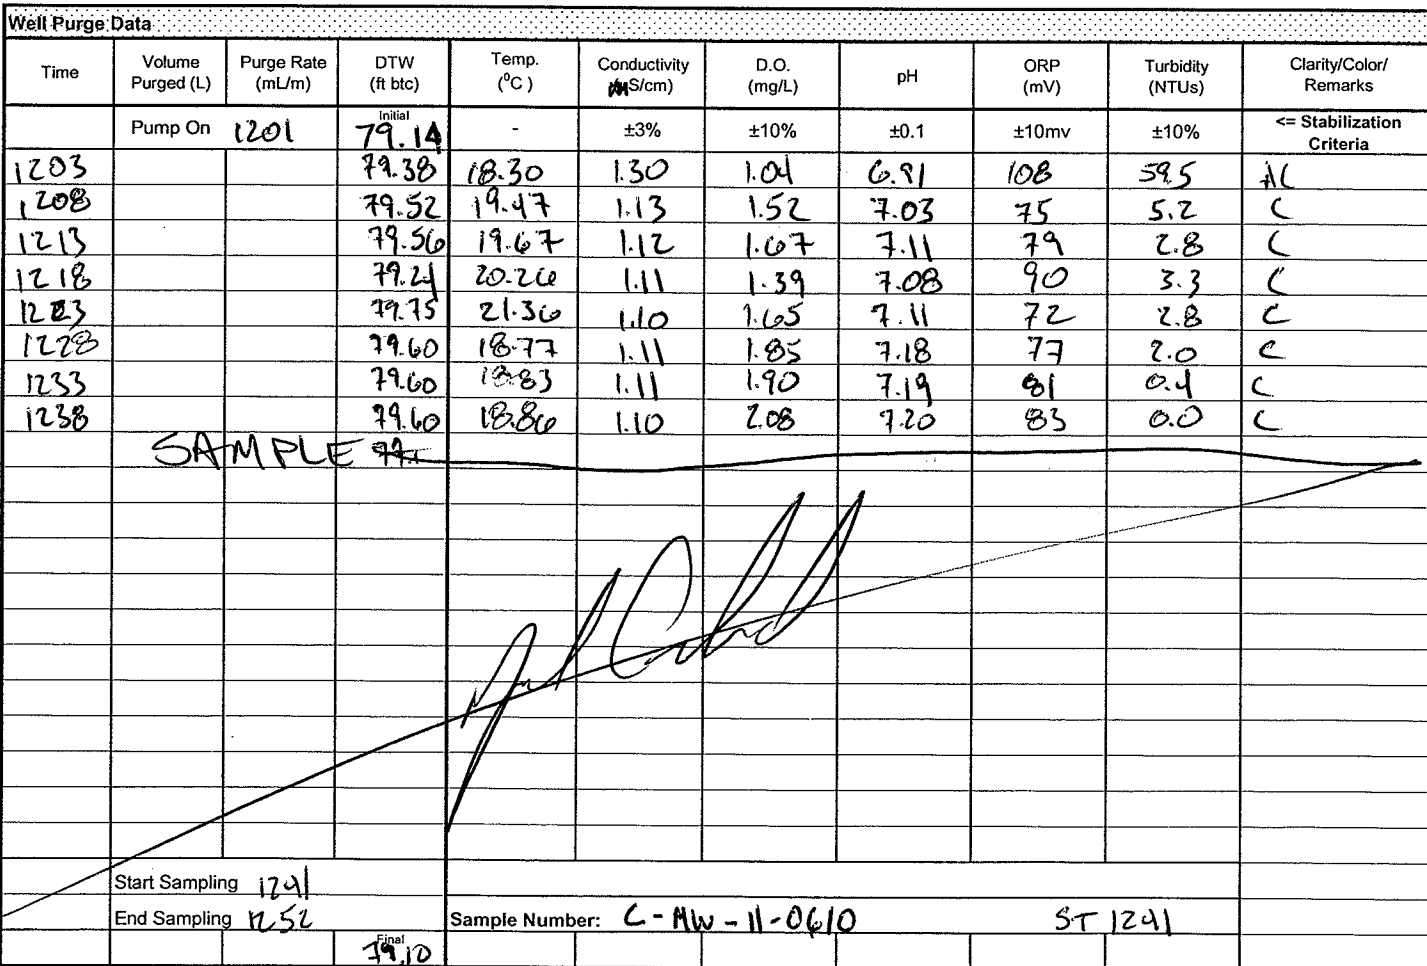 Well Purge Data
Time Volume Purged (L) Purge Rate (mL/m) DTW (ft btc) Temp. (⁰C ) Conductivity mS/cm) D.O. (mg/L) pH ORP (mV) Turbidity (NTUs) Clarity/Color/ Remarks
Pump On 1201 Initial 79.14 - ±3% ±10% ±0.1 ±10mv ±10% <= Stabilization Criteria
1203 79.38 18.30 1.30 1.04 6.91 108 59.5
1208 79.52 19.47 1.13 1.52 7.03 75 5.2 C
1213 79.56 19.67 1.12 1.67 7.11 79 2.8 C
1218 79.24 20.26 1.11 1.39 7.08 90 3.3 C
1223 79.75 21.36 1.10 1.65 7.11 72 2.8 C
1228 79.60 18.77 1.11 1.85 7.18 77 2.0 C
1233 79.60 18.83 1.11 1.90 7.19 81 0.4 C
1238 79.60 18.86 1.10 2.08 7.20 83 0.0 C
SAMPLE
Start Sampling 1241
End Sampling 1252 Sample Number: C-MW-11-0610 ST 1241
Final 79.10